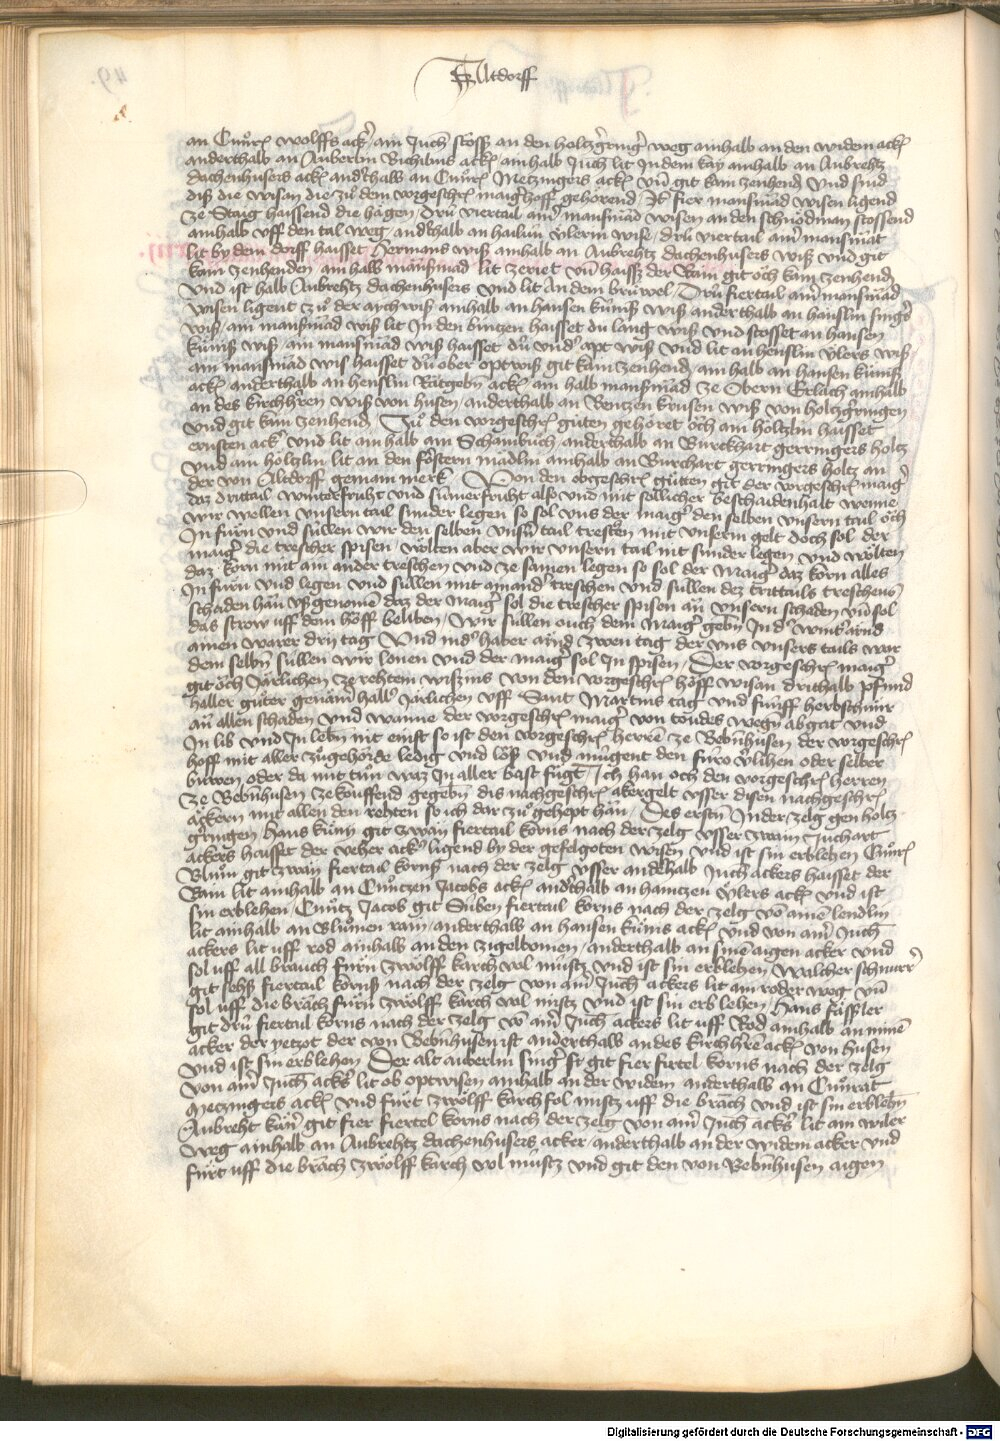 Altdorff
an Cuͦnr̄ wolffs ack̾ / ain Juch̄ stosst an den holtzgr̾ing̾ weg ainhalb an den widem ack̾
anderthalb an Auberlin Richlins ack̾ ainhalb Juch lit Jndem kay ainhalb an Aubrehtz
dachenhusers ack̾ and̾thalb an Cuͦnr̄ Metzingers ack̾ vn̄ git kain zenhend Vnd sind
diß die wisan die zuͦ dem vorgeschr̄ maig̾hoff gehorend / Jt̄ fier mansmad wisen ligend
ze Staig haissend die hagen / Dru viertail ains mansmad wisen an den schnodman stossend
ainhalb vff den tal weg / and̾thalb an hailun vlerin wise / dru viertail ains mansmat
lit by dem dorff haisset Hermans wiß ainhalb an Aubrehtz dachenhusers wiß vnd git
kain zenhenden / ain halb mansmad lit ze riet vn̄ haist der Rain git och kain zenhend
vnd ist halb Aubrehtz dachenhusers vnd lit an dem bruwel / Dru fiertail ains mansmad
wisen ligent zuͦ der aychwiß ainhalb an hansen kunis wiß anderthalb an hanslin sing̾s
wiß / ain mansmad wiß lit Jn den bintzen haisset du lang wiß vnd stosset an hansen
kunis wiß / ain mansmad wiß haisset du vnd̾ opt wiß vnd lit an henslin vlers wiß
ain mansmad wis haisset du ober optwiß git kain zenhend / ain halb an hansen kunis
ack̾ anderthalb an henslin Ratgebn ack̾ ain halb mansmad ze Obern Erlach ainhalb
an des kirchhren wiß von husen / anderthalb an Bentzen krusen wiß von holtzgr̾ingen
vnd git kain zenhend / Zuͦ den vorgeschr̄ guten gehoret och ain holtzlin haisset
ernsten ack̾ vnd lit ain halb am Schainbuch anderthalb an Burckhart gerringers holtz
vnd ain holtzlin lit an den forstern madlin ainhalb an Burchart gerringers holtz an
der von Altdorff gemain merk / Von den obgeschr̄ gutten git der vorgeschr̄ maig̾
daz drittail winterfruht vnd sumerfruht also vnd mit sollicher beschaidenhait wenne
wir wellen vnsern tail sunder legen so sol vns der maig̾ den selben vnsern tail och
Jn furn vnd sullen wir den selben vnsn̄ tail tresten mit vnserm gelt doch sol der
maig̾ die trescher spisen / wolten aber wir vnsern tail nit sunder legen vnd wolten
daz korn mit ain ander treschen vnd ze samen legen so sol der Maig̾ daz korn alles
Jn furn vnd legen vnd sullen mit ainand̾ treschen vnd sullen dez trittails treschens
schaden han vßgenomē daz der Maig̾ sol die trescher spisen an vnsern schaden vn̄ sol
das strow uff dem hoff beliben / wir sullen ouch dem Maig̾ gebn̄ Jn d̾ wint̾ arnd
ainen warer dry tag Vnd in d̾ haber arnd zwen tag der vns vnsers tails war
dem selbn sullen wir lonen vnd der maig̾ sol Jn spisen / Der vorgeschr̄ maig̾
git och Jarlichen ze rehtem wiszins von den vorgeschr̄ hoff wisan drithalb pfund
haller guter genam̄ hall̾ Jarlichen vff Sant Martins tag vnd funff herbsthunr
an allen schaden vnd wanne der vorgeschr̄ maig̾ von todes wegn abgat vnd
Jn lib vnd Jn lebn nit enist so ist den vorgeschr̄ herrē ze Bebn̄husen der vorgeschr̄
hoff mit aller zuͦgehorde ledig vnd loß vnd mugent den furo v̾lihen oder selber
buwen oder da mit tuͦn waz Jn aller bast fugt / Jch han och den vorgeschr̄ herren
ze Bebn̄husen ze kouffend gegebn dis nachgeschr̄ akergelt vsser disen nachgeschr̄
ackern mit allen den rehten so ich dar zuͦ gehept han / Des erstn̄ Jn der zelg gen holtz
gr̾ingen Hans kuny git zway fiertail korns nach der zelg vsser zwain Juchart
ackers haisset der veher ack̾ ligend by der gefelgoten wisen vnd ist sin erblehen Cuͦnr̄
Bluͦm git zway fiertail korns nach der zelg vsser andehalb Juch ackers haisset der
Rain lit ainhalb an Cuͦntzen Jacobs ack̾ and̾thalb an haintzen vlers ack̾ vnd ist
sin erblehen / Cuͦntz Jacob git Siben fiertail korns nach der zelg vō ainē lendlin
lit ainhalb an Bluͦmen rain / anderthalb an hansen kunis ack̾ vnd von ain̾ Juch̄
ackers lit uff rod ainhalb an den zigelbomen / anderthalb an sinē aigen acker vnd
sol uff all brauch furn zwolff karch vol mistz vnd ist sin erblehen Walcher schnurr̾
git sehs fiertail korns nach der zelg von ain̾ Juch̄ ackers lit am roder weg vn̄
sol uff die brach furn zwolff karch vol mistz vnd ist sin erb lehen / Hans Fassler
git dru fiertail korns nach der zelg vō ain̾ Juch ackers lit uff Rod ainhalb an minē
acker der yetzot der von Bebn̄husen ist anderthalb an des kirchh̾rē ack̾ von husen
vnd ist sin erblehen Der alt auberlin sing̾ st git fier firtel korns nach der zelg
von ain̾ Juch̄ acks̾ lit ob optwisen ainhalb an der widem anderthalb an Cuͦnrat
Metzingers ack̾ vnd furt zwolff karch fol mistz uff die brach vnd ist sin erblebn̄
Aubreht kun̾ git fier fiertel korns nach der zelg von ain̾ Juch̄ acks̾ lit am wiler
weg ainhalb an Aubrehtz dachenhusers acker anderthalb an der widem acker vnd
furt uff die brach zwolff karch vol mistz vnd git den von Bebn̄husen aigen
Digitalisierung gefördert durch die Deutsche Forschungsgemeinschaft - DFG